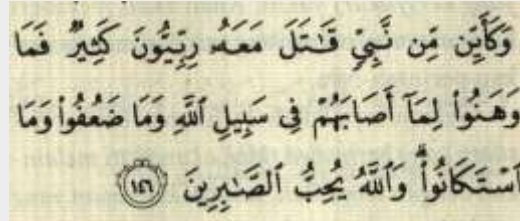 وَكَأَيِّن مِّن نَّبِيٍّ قَـٰتَلَ مَعَهُۥ رِبِّيُّونَ كَثِيرٌ فَمَا
وَهَنُوا۟ لِمَآ أَصَابَهُمْ فِى سَبِيلِ ٱللَّهِ وَمَا ضَعُفُوا۟ وَمَا
ٱسْتَكَانُوا۟ ۗ وَٱللَّهُ يُحِبُّ ٱلصَّـٰبِرِينَ ١٤٦